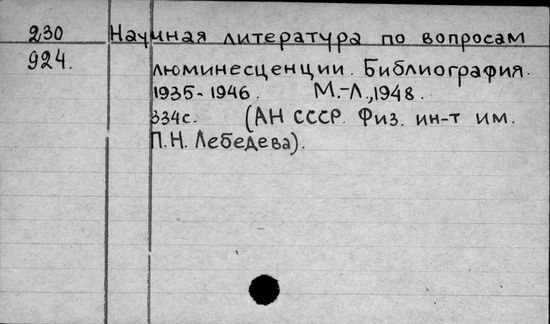 230 Научная литература по вопросам
924. люминесценции. Библиография.
1935-1946. М.-Л., 1948.
334с. (АН СССР. Физ. ин-т им.
П.Н. Лебедева).